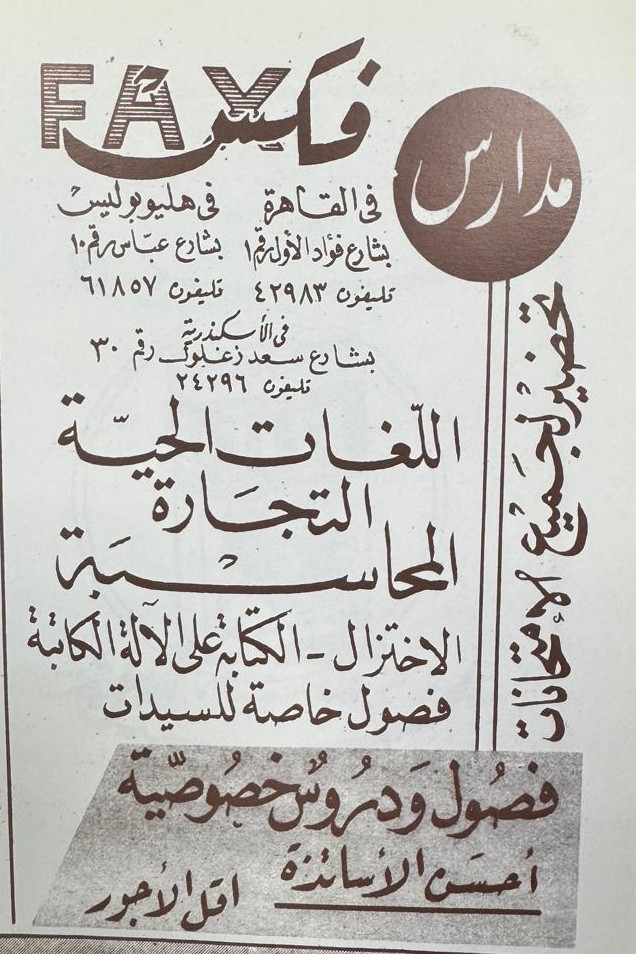 مدارس
فكس
FAX
فى القاهرة
بشارع فؤاد الأول رقم ١
تليفون ٤٢٩٨٣
فى هليوبوليس
بشارع عباس رقم ١٠
تليفون ٦١٨٥٧
فى الأسكندرية
بشارع سعد زغلول رقم ٣٠
تليفون ٢٤٢٩٦
تحضير لجميع الإمتحانات
اللّغات الحيّة
التجارة
المحاسبة
الاختزال - الكتابة على الآلة الكاتبة
فصول خاصة للسيدات
فصُول وَدرُوسٌ خصُوصيّة
أحسن الأساتذة
اقل الأجور